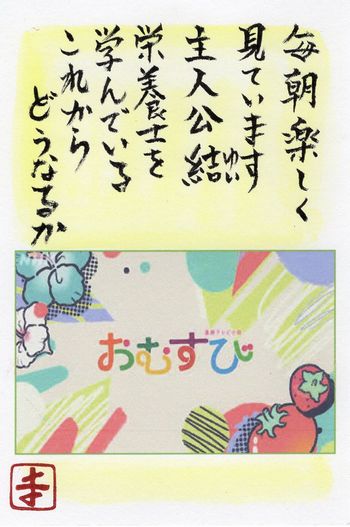 毎朝楽しく
見ています
主人公結
ゆい
栄養士を
学んでいる
これから
どうなるか
連続テレビ小説
おむすび